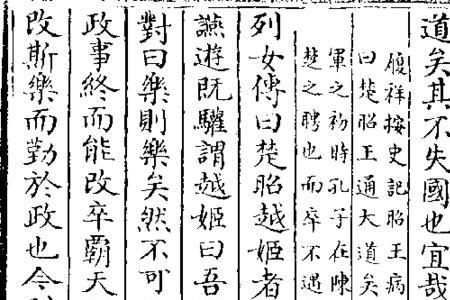 道矣其不失國也宜哉
履祥按史記昭王病
曰楚昭王通大道矣
軍之初時孔子在陳
楚之聘也而卒不遇
列女傳曰楚昭越姬者
讌遊既驩謂越姬曰吾
對曰樂則樂矣然不可
政事終而能改卒霸天
改斯樂而勤於政也今